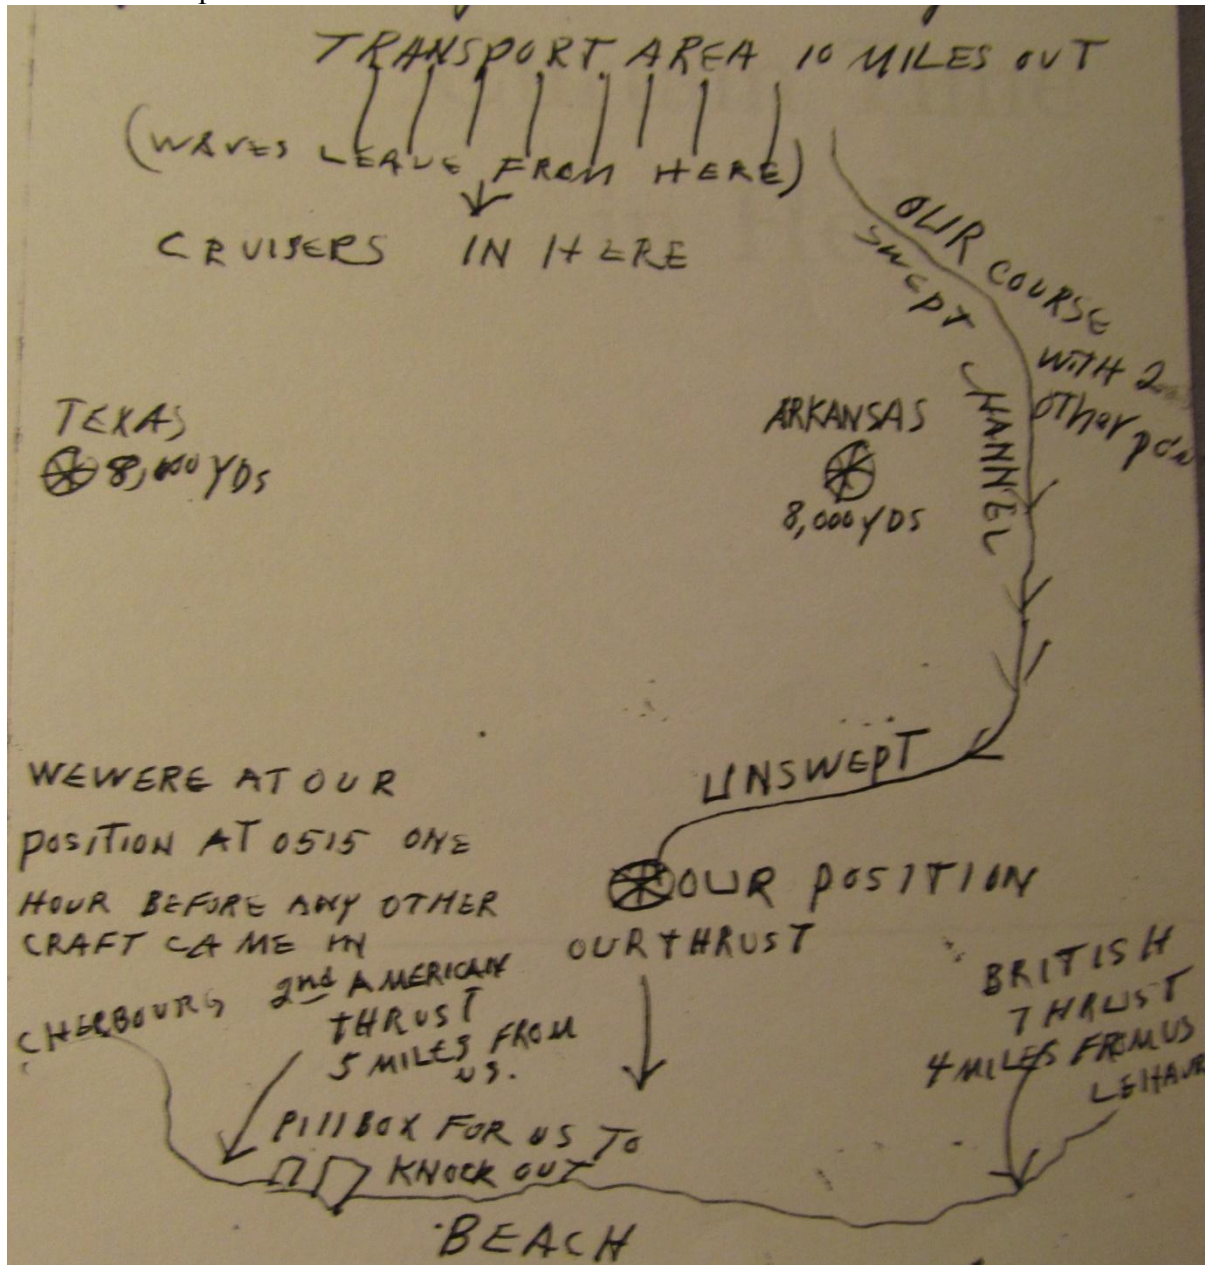 TRANSPORT AREA 10 MILES OUT
(WAVES LEAVE FROM HERE)
CRUISERS IN HERE
OUR COURSE
WITH 2
OTHER
SWEPT CHANNEL
TEXAS
8,000 YDS
ARKANSAS
8,000 YDS
UNSWEPT
WE WERE AT OUR
POSITION AT 0515 ONE
HOUR BEFORE ANY OTHER
CRAFT CAME IN
OUR POSITION
OUR THRUST
CHERBOURG
2nd AMERICAN
THRUST
5 MILES FROM
US.
BRITISH
THRUST
4 MILES FROM US
PIllBOX FOR US TO
KNOCK OUT
BEACH